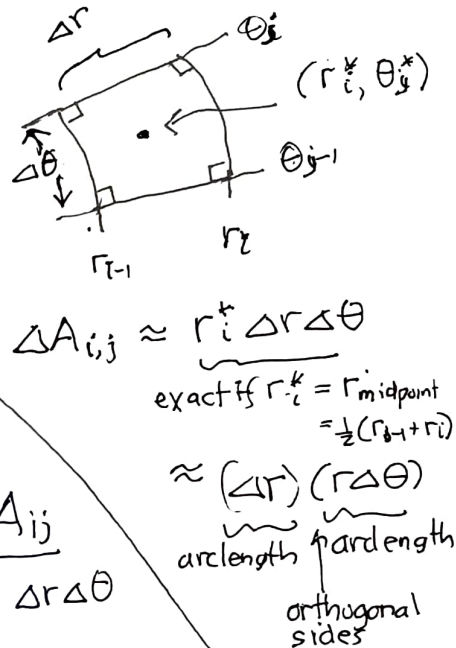 Δr
θj
(ri*, θj*)
Δθ
θj-1
ri-1
ri
ΔAi,j ≈ ri* Δr Δθ
exact if ri* = rmidpoint
= ½(ri-1 + ri)
≈ (Δr) (rΔθ)
arclength arclength
orthogonal
sides
Aij
Δr Δθ